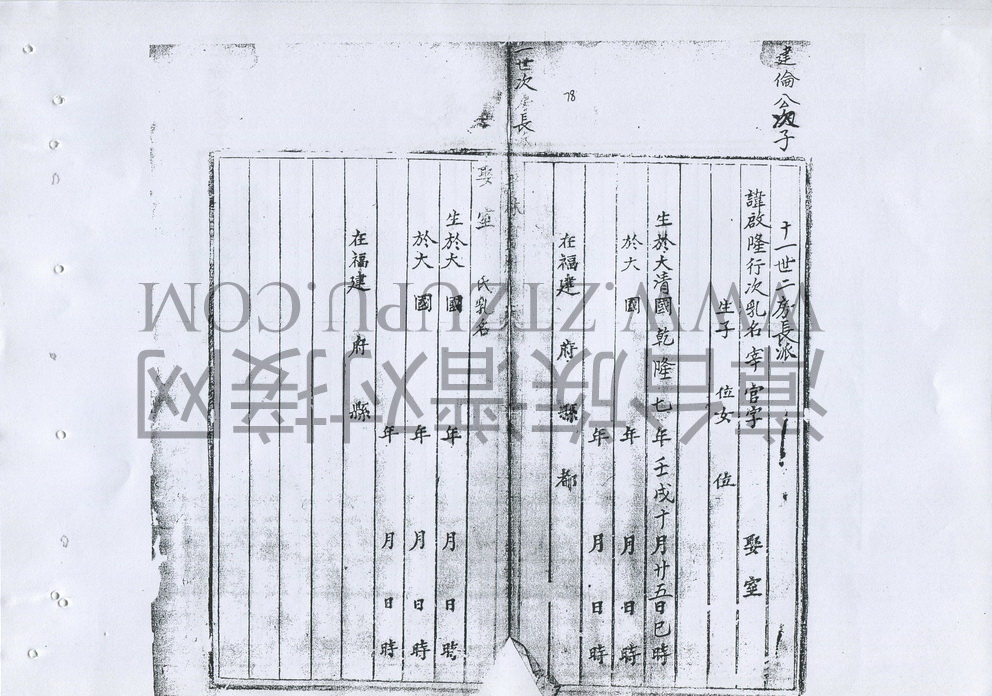 建倫公次子
十一世二房長派
諱啟隆行次乳名宰官字 娶室
生子 位女 位
生於大清國乾隆七年壬戌十月廿五日巳時
於大 國 年 月 日 時
年 月 日 時
在福建 府 縣 都
78
世次 長
娶室 氏乳名
生於大 國 年 月 日 時
於大 國 年 月 日 時
年 月 日 時
在福建 府 縣
WWW.ZTZUPU.COM
漳台族谱对接网